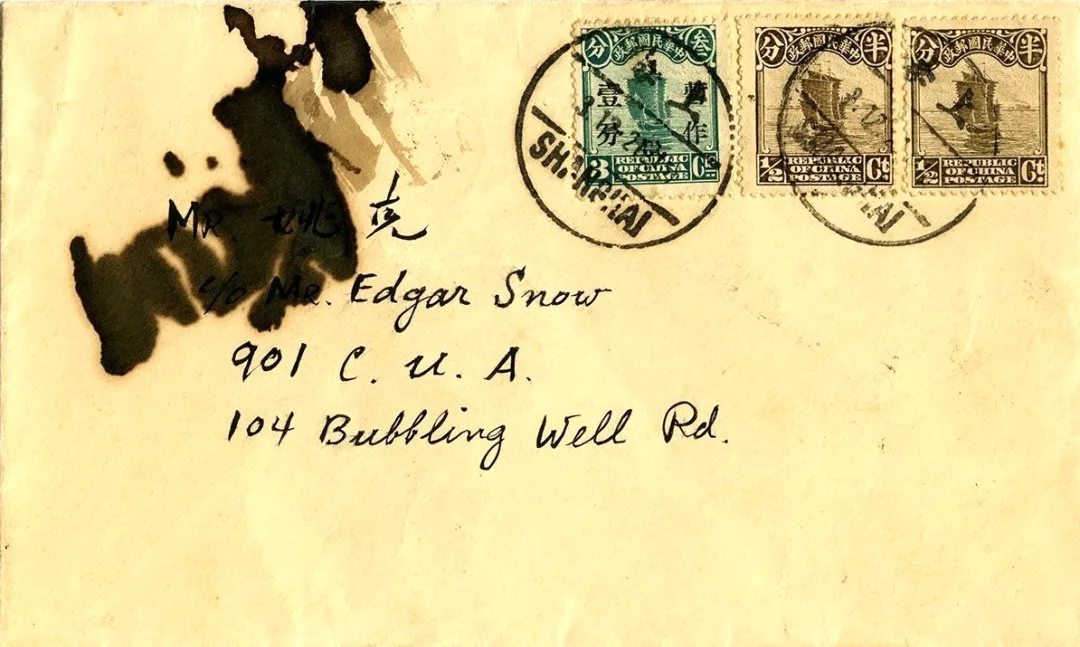 叁分
中華民國郵政
暫作
壹分
3 Cts
REPUBLIC
OF CHINA
POSTAGE
半分
中華民國郵政
1/2 Ct
REPUBLIC
OF CHINA
POSTAGE
半分
中華民國郵政
1/2 Ct
REPUBLIC
OF CHINA
POSTAGE
SHANGHAI
MR 姚克
c/o MR. Edgar Snow
901 C. U. A.
104 Bubbling Well Rd.